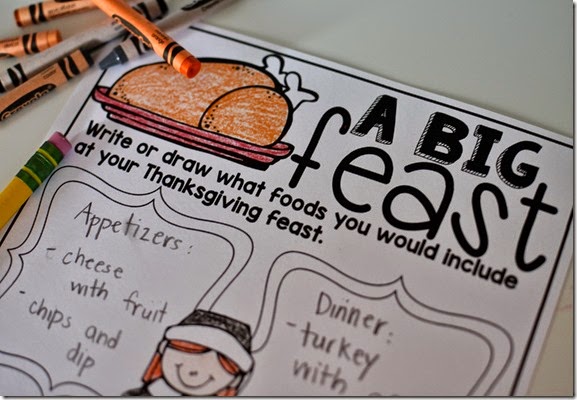 A BIG
feast
Write or draw what foods you would include
at your Thanksgiving feast.
Appetizers:
- cheese
with fruit
- chips and
dip
Dinner:
- turkey
with